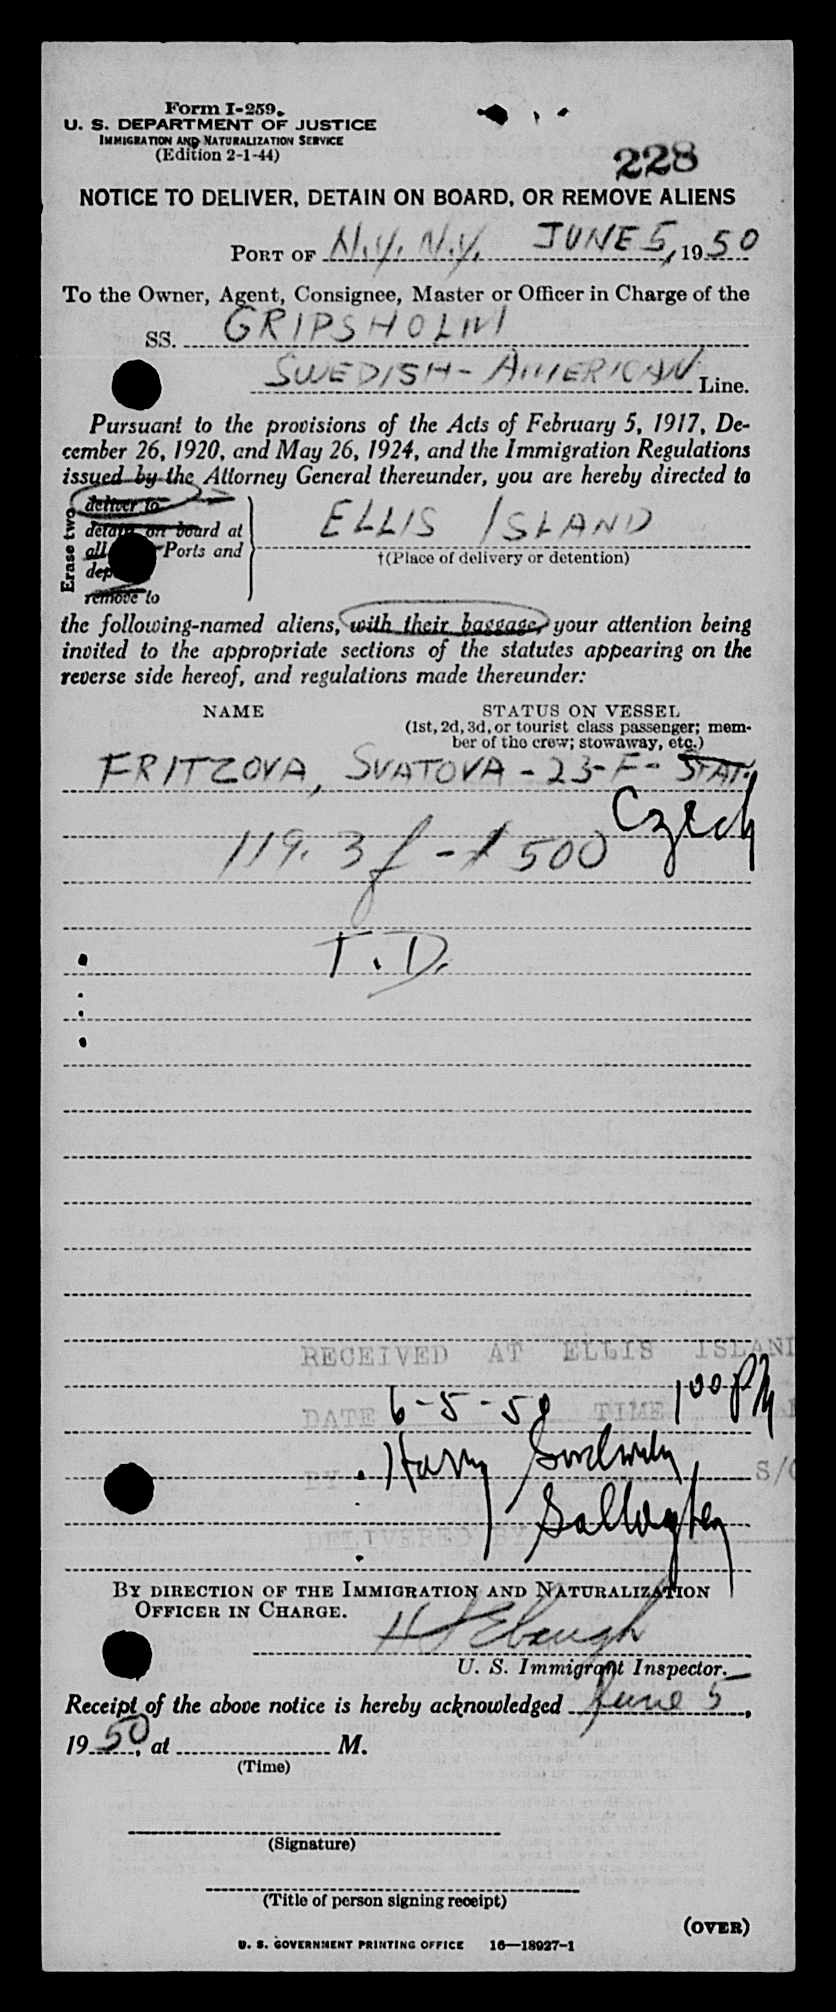 Form I-259.
U. S. DEPARTMENT OF JUSTICE
IMMIGRATION AND NATURALIZATION SERVICE
(Edition 2-1-44)
228
NOTICE TO DELIVER, DETAIN ON BOARD, OR REMOVE ALIENS
PORT OF N.Y. N.Y. JUNE 5, 1950
To the Owner, Agent, Consignee, Master or Officer in Charge of the
SS. GRIPSHOLM
SWEDISH-AMERICAN Line.
Pursuant to the provisions of the Acts of February 5, 1917, De-
cember 26, 1920, and May 26, 1924, and the Immigration Regulations
issued by the Attorney General thereunder, you are hereby directed to
deliver to
detain on board at
all Ports and
Erase two
ELLIS ISLAND
†(Place of delivery or detention)
remove to
the following-named aliens, with their baggage, your attention being
invited to the appropriate sections of the statutes appearing on the
reverse side hereof, and regulations made thereunder:
NAME STATUS ON VESSEL
(1st, 2d, 3d, or tourist class passenger; mem-
ber of the crew; stowaway, etc.)
FRITZOVA, SVATOVA - 23-F- STAT.
Czech
119. 3 f - $500
T.D.
RECEIVED AT ELLIS ISLAND
DATE 6-5-50 TIME 1 00 PM
BY Harry S/
Gallagher
DELIVERED BY
BY DIRECTION OF THE IMMIGRATION AND NATURALIZATION
OFFICER IN CHARGE.
U. S. Immigrant Inspector.
Receipt of the above notice is hereby acknowledged June 5,
1950, at M.
(Time)
(Signature)
(Title of person signing receipt)
(OVER)
U. S. GOVERNMENT PRINTING OFFICE 16—18927-1